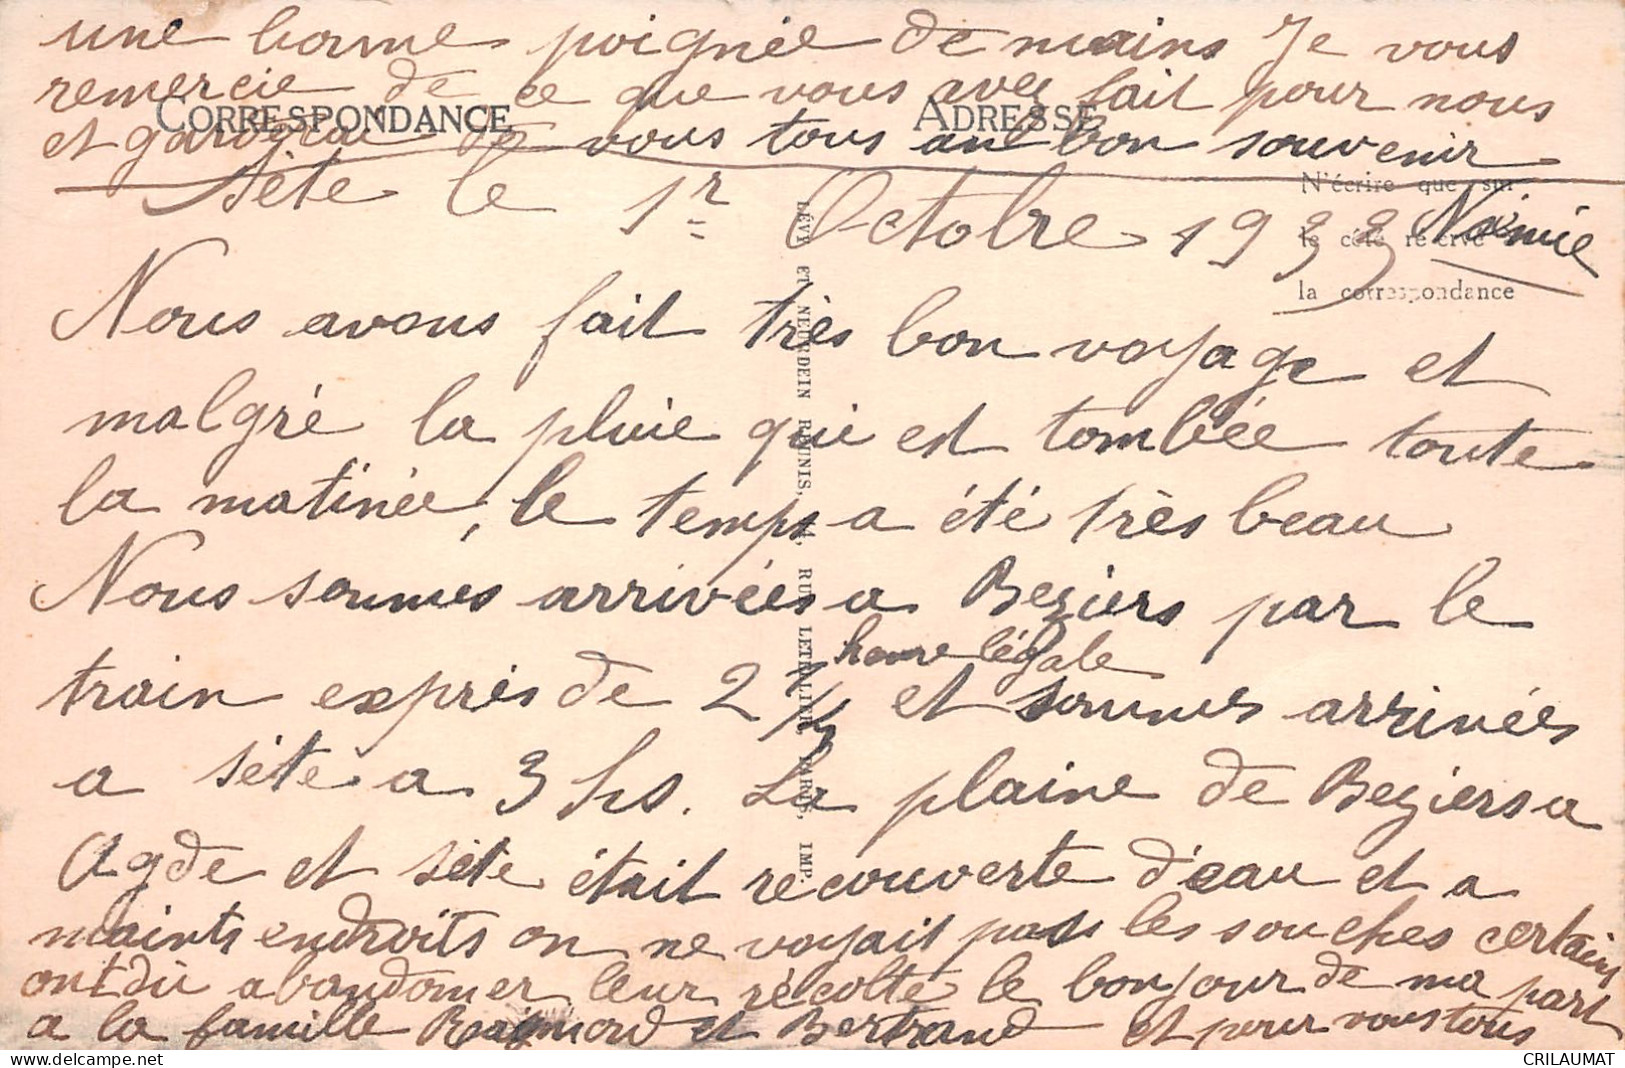 une bonne poignée de mains Je vous
remercie de ce que vous avez fait pour nous
CORRESPONDANCE
ADRESSE
et de vous tous un bon souvenir
N'écrire que sur
le côté réservé
la correspondance
Noémie
Sète le 1r Octobre 1933
Nous avons fait très bon voyage et
malgré la pluie qui est tombée toute
la matinée, le temps a été très beau
Nous sommes arrivées a Beziers par le
heure légale
train exprès de 2 1/2 et sommes arrivées
a Sète a 3 hs. La plaine de Beziers a
Agde et Sète était recouverte d'eau et a
maints endroits on ne voyait pas les souches certains
ont dû abandonner leur récolte le bonjour de ma part
a la famille Raymond et Bertrand et pour vous tous
LÉVY ET NEURDEIN RÉUNIS, RUE LETELLIER, PARIS, IMP.
CRILAUMAT